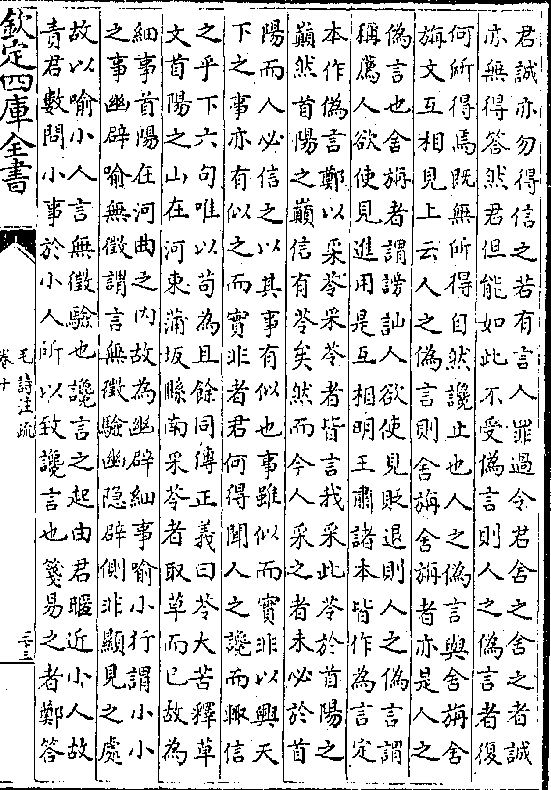 君誠亦勿得信之若有言人罪過令君舍之舍之者誠
亦無得答然君但能如此不受偽言則人之偽言者復
何所得焉既無所得自然讒止也人之偽言與舍旃舍
旃文互相見上云人之偽言則舍旃舍旃者亦是人之
偽言也舍旃者謂謗訕人欲使見貶退則人之偽言謂
稱薦人欲使見進用是互相明王肅諸本皆作為言定
本作偽言鄭以采苓采苓者皆言我采此苓於首陽之
巔然首陽之巔信有苓矣然而今人采之者未必於首
陽而人必信之以其事有似也事雖似而實非以興天
下之事亦有似之而實非者君何得聞人之讒而輒信
之乎下六句唯以苟為且餘同傳正義曰苓大苦釋草
文首陽之山在河東蒲坂縣南采苓者取草而已故為
細事首陽在河曲之內故為幽辟細事喻小行謂小小
之事幽辟喻無徵謂言無徵驗幽隱辟側非顯見之處
故以喻小人言無徵驗也讒言之起由君暱近小人故
責君數問小事於小人所以致讒言也箋易之者鄭答
欽定四庫全書
毛詩注疏
卷十